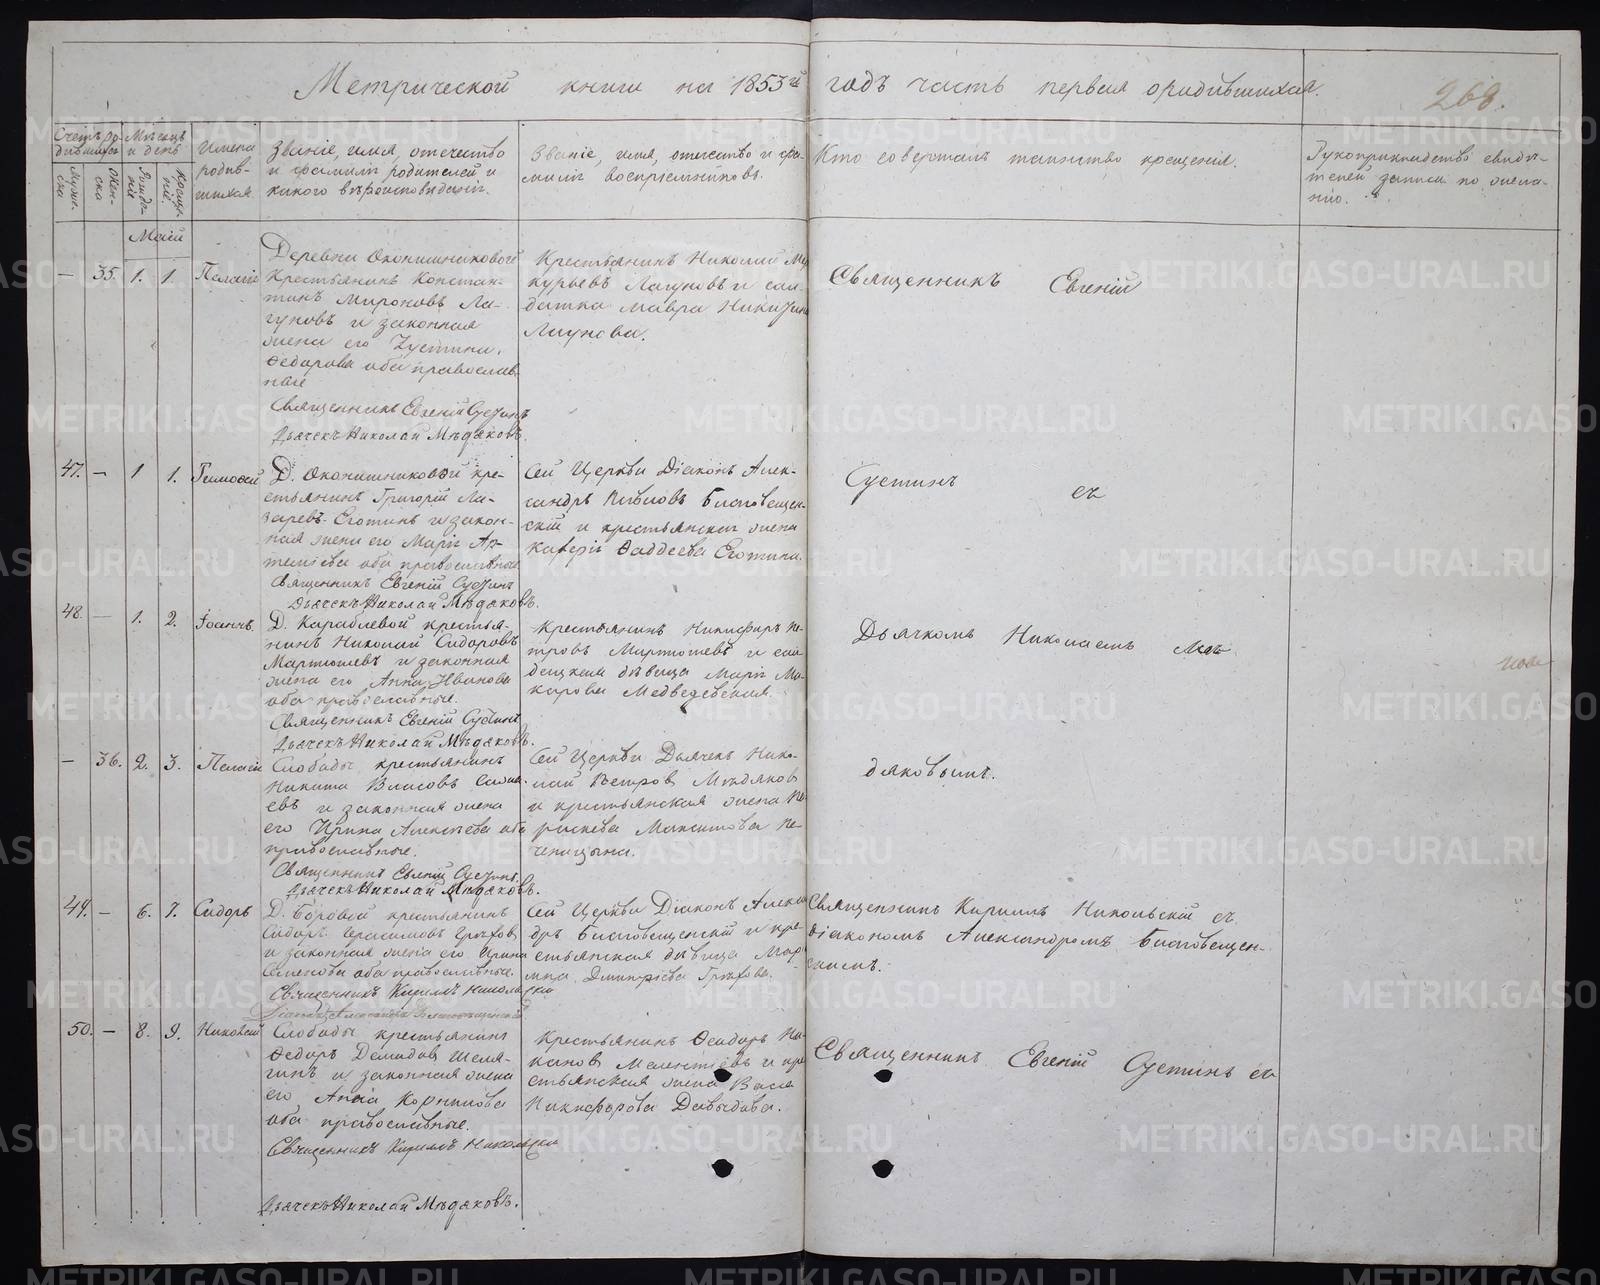 Метрической книги на 1853й годъ часть первая о родившихся.
268.
Счетъ ро-
дившихся
Мѣсяцъ
и день
Имена
родив-
шихся.
Званіе, имя, отечество
и фамилія родителей и
какого вѣроисповѣданія.
Званіе, имя, отчество и фа-
милія воспріемниковъ.
Кто совершалъ таинство крещенія.
Рукоприкладство свидѣ-
телей записи по жела-
нію.
Муже-
ска
Жен-
ска
Рожде-
нія
Креще-
нія.
Маій
— 35. 1. 1. Пелагія
Деревни Оконишниковой
Крестьянинъ Констан-
тинъ Мироновъ Ла-
гуновъ и законная
жена его Іустина
Ѳедорова оба православ-
ные
Священникъ Евгеній Сустинъ
Дьячекъ Николай Мѣдяковъ.
Крестьянинъ Николай
курьевъ Лагуновъ и сол-
датка Мавра Никитина
Лагунова.
Священникъ Евгеній
47. — 1 1. Тимоѳей
Д. Оконишниковой кре-
стьянинъ Григорій Ла-
заревъ Еготинъ и закон-
ная жена его Марія Ар-
темьева оба православные
Священникъ Евгеній Сустинъ
Дьячекъ Николай Мѣдяковъ.
Сей Церкви Діаконъ Алек-
сандръ Благовещен-
скій и крестьянская жена
Ѳаддеева Еготина.
Сустинъ съ
48. — 1. 2. Іоаннъ.
Д. Караблевой крестья-
нинъ Николай Сидоровъ
Мартюшевъ и законная
жена его Анна Иванова
оба православные.
Священникъ Евгеній Сустинъ
Дьячекъ Николай Мѣдяковъ.
Крестьянинъ Никифоръ Пе-
тровъ Мартюшевъ и сол-
децкая дѣвица Марія Ма-
карова Медведевская.
Дьячкомъ Николаемъ Мѣ-
— 36. 2. 3. Пелагія
Слободы крестьянинъ
Никита Власовъ
евъ и законная жена
его Ирина Алексѣева оба
православные.
Священникъ Евгеній Сустинъ.
Дьячекъ Николай Мѣдяковъ.
Сей Церкви Дьячекъ Нико-
лай Петровъ Мѣдяковъ
и крестьянская жена Па-
раскева Максимова Пе-
ченицына.
дяковымъ.
49. — 6. 7. Сидоръ
Д. Боровой крестьянинъ
Сидоръ Герасимовъ Грѣховъ
и законная жена его Ирина
Семенова оба православные.
Священникъ Кириллъ Никольскій
Діаконъ Александръ Благовещенскій
Сей Церкви Діаконъ Алекса-
дръ Благовещенскій и кре-
стьянская дѣвица Мар-
Димитріева Грѣхова.
Священникъ Кириллъ Никольскій съ
діакономъ Александромъ Благовещен-
скимъ.
50. — 8. 9. Николай
Слободы крестьянинъ
Ѳедоръ Демидовъ Шеля-
гинъ и законная жена
его Анна Корнилова
оба православные.
Священникъ Кириллъ Никольскій
Дьячекъ Николай Мѣдяковъ.
Крестьянинъ Ѳеодоръ Ни-
кановъ Мелентьевъ и кре-
стьянская жена Васса
Никифорова Давыдова.
Священникъ Евгеній Сустинъ съ
METRIKI.GASO-URAL.RU